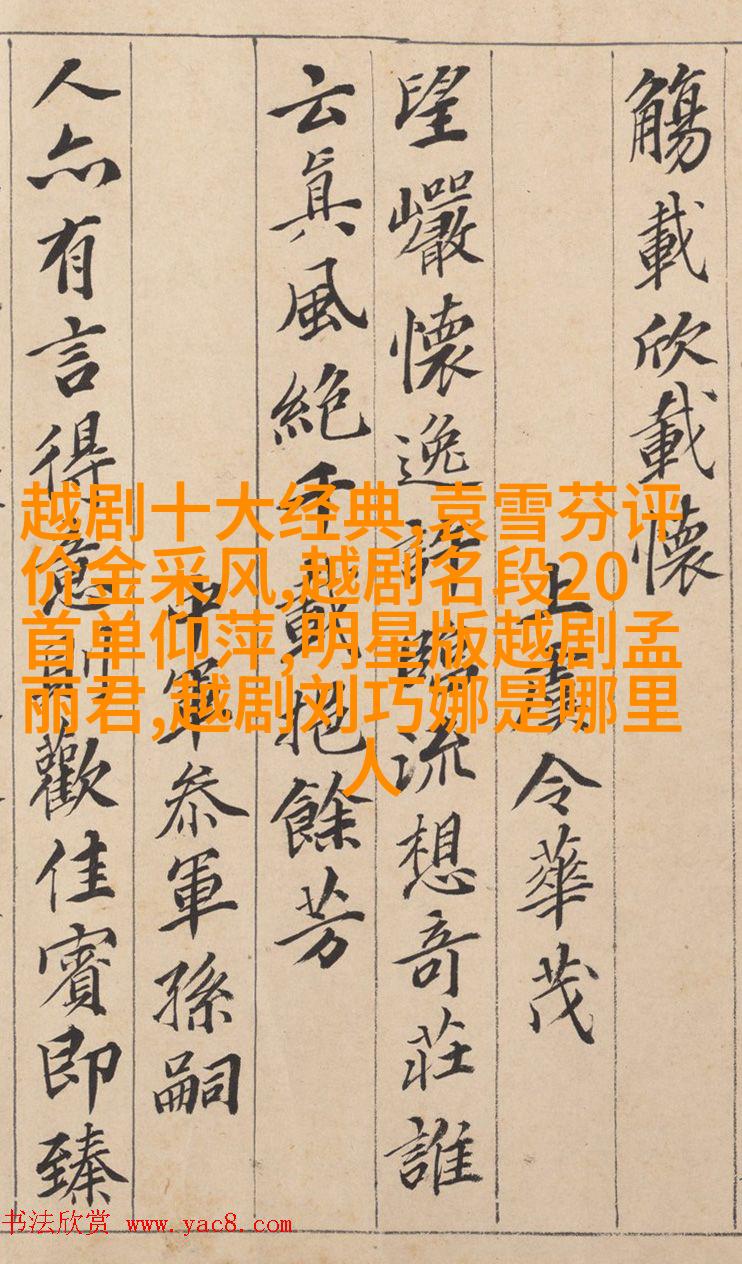 觴載欣載懷
上虞令華茂
望巖懷逸許臨流想奇莊誰
云眞風絶千載挹餘芳
中軍参軍孫嗣
人亦有言得意則歡佳賓即臻
越剧十大经典,袁雪芬评
价金采风,越剧名段20
首单仰萍,明星版越剧孟
丽君,越剧刘巧娜是哪里
人
书法欣赏 www.yac8.com